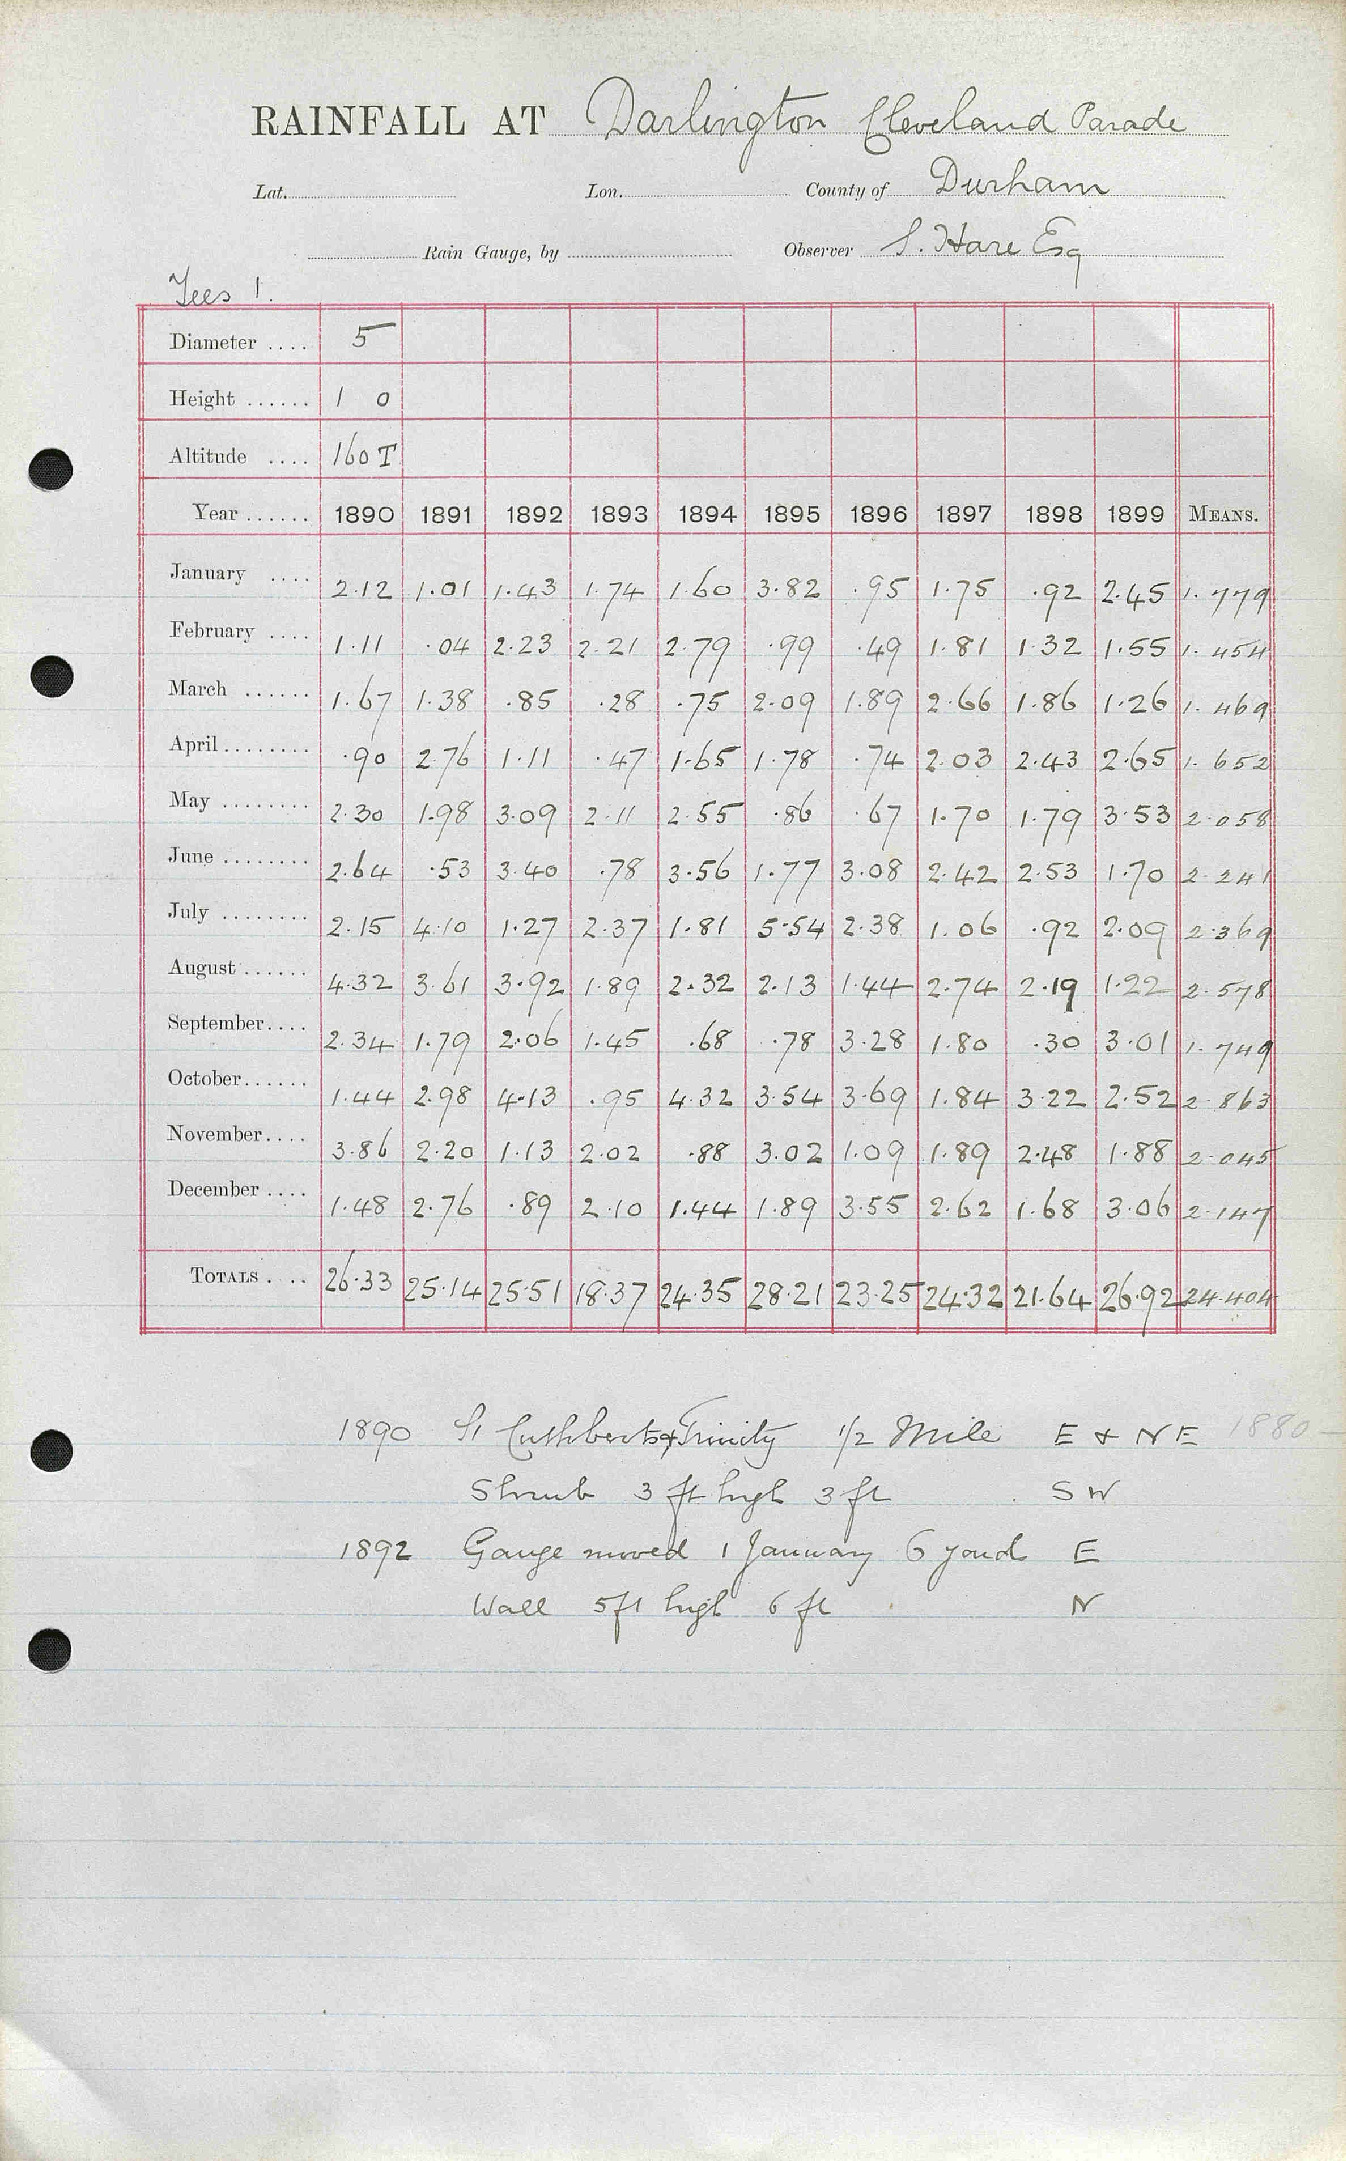 RAINFALL AT Darlington Cleveland Parade
Lat. Lon. County of Durham
Rain Gauge, by Observer S. Hare Esq
Tees 1.
Diameter .... 5
Height ...... 1 0
Altitude .... 160 T
Year ...... 1890 1891 1892 1893 1894 1895 1896 1897 1898 1899 MEANS.
January .... 2.12 1.01 1.43 1.74 1.60 3.82 .95 1.75 .92 2.45 1.779
February .... 1.11 .04 2.23 2.21 2.79 .99 .49 1.81 1.32 1.55 1.454
March ...... 1.67 1.38 .85 .28 .75 2.09 1.89 2.66 1.86 1.26 1.469
April ........ .90 2.76 1.11 .47 1.65 1.78 .74 2.03 2.43 2.65 1.652
May ........ 2.30 1.98 3.09 2.11 2.55 .86 .67 1.70 1.79 3.53 2.058
June ........ 2.64 .53 3.40 .78 3.56 1.77 3.08 2.42 2.53 1.70 2.241
July ........ 2.15 4.10 1.27 2.37 1.81 5.54 2.38 1.06 .92 2.09 2.369
August ...... 4.32 3.61 3.92 1.89 2.32 2.13 1.44 2.74 2.19 1.22 2.578
September.... 2.34 1.79 2.06 1.45 .68 .78 3.28 1.80 .30 3.01 1.749
October...... 1.44 2.98 4.13 .95 4.32 3.54 3.69 1.84 3.22 2.52 2.863
November.... 3.86 2.20 1.13 2.02 .88 3.02 1.09 1.89 2.48 1.88 2.045
December .... 1.48 2.76 .89 2.10 1.44 1.89 3.55 2.62 1.68 3.06 2.147
TOTALS .... 26.33 25.14 25.51 18.37 24.35 28.21 23.25 24.32 21.64 26.92 24.404
1890 St Cuthberts & Trinity 1/2 Mile E & NE 1880 –
Shrub 3 ft high 3 ft SW
1892 Gauge moved 1 January 6 yards E
Wall 5ft high 6 ft N